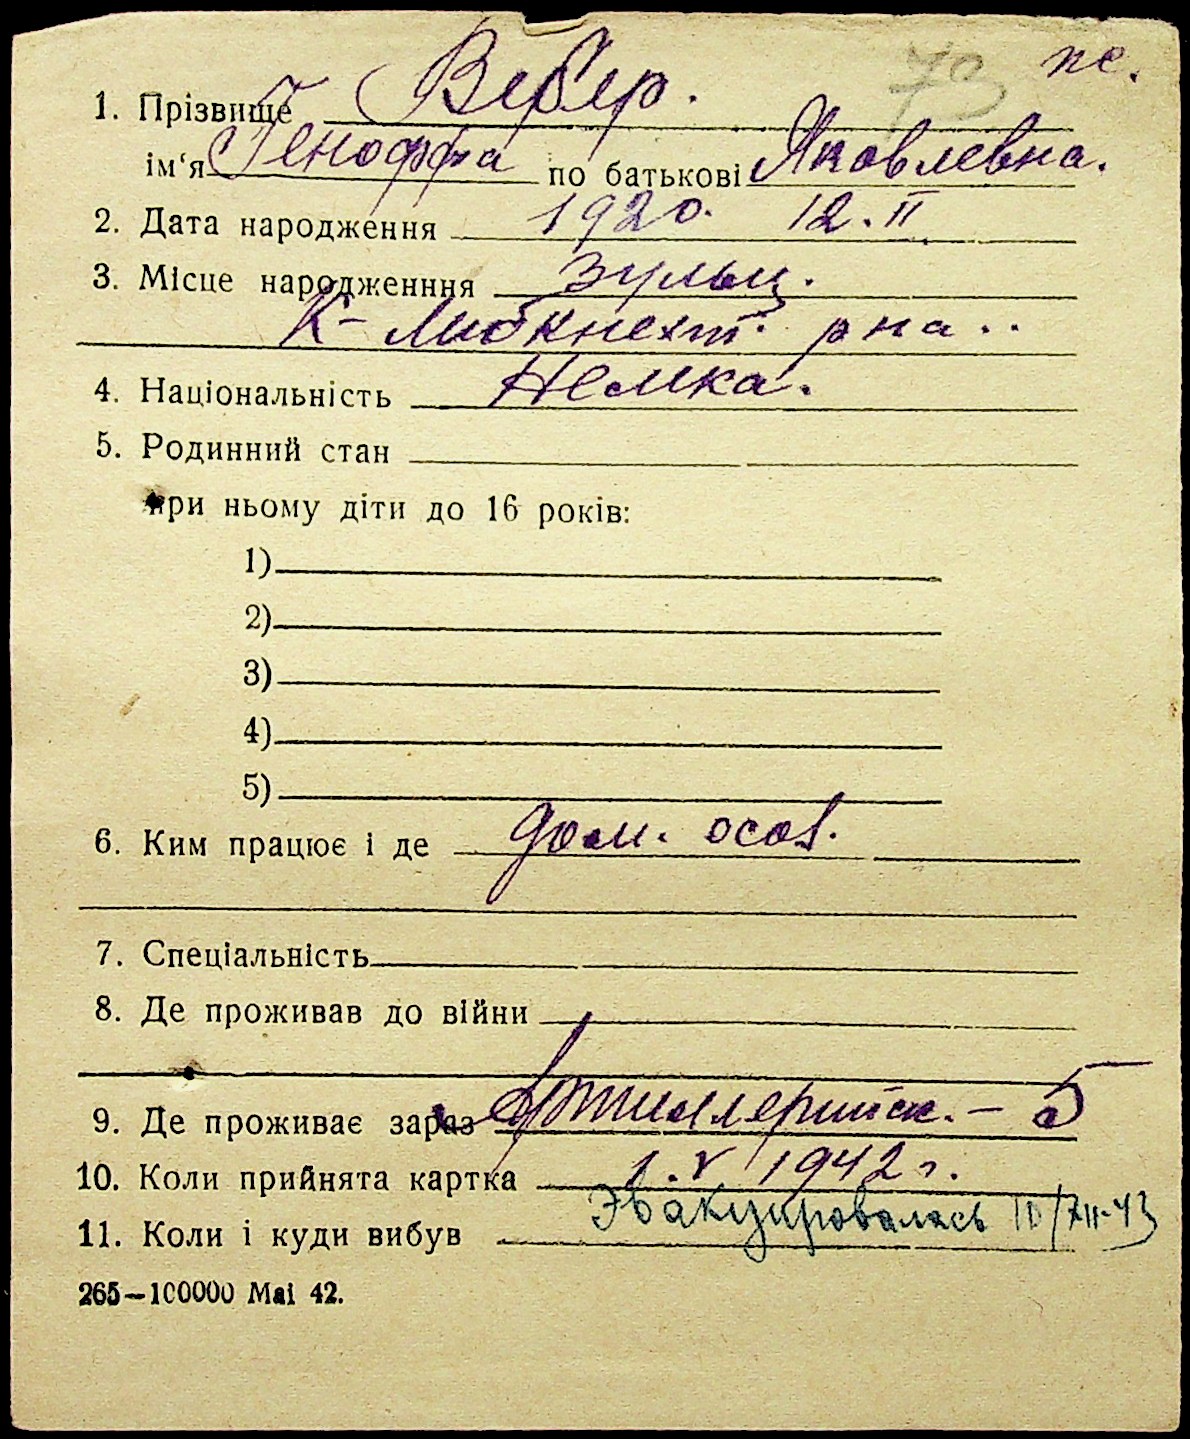 73 пс.
1. Прізвище Вебер.
ім‘я Геноффа по батькові Яковлевна.
2. Дата народження 1920. 12.II
3. Місце народженння Зульц.
К-Либкнехт. р на..
4. Національність Немка.
5. Родинний стан
при ньому діти до 16 років:
1)
2)
3)
4)
5)
6. Ким працює і де дом. особ.
7. Спеціальність
8. Де проживав до війни
9. Де проживає зараз Артиллерийск. – 5
10. Коли прийнята картка 1.V 1942 г.
11. Коли і куди вибув Эвакуировалась
265–100000 Маі 42.